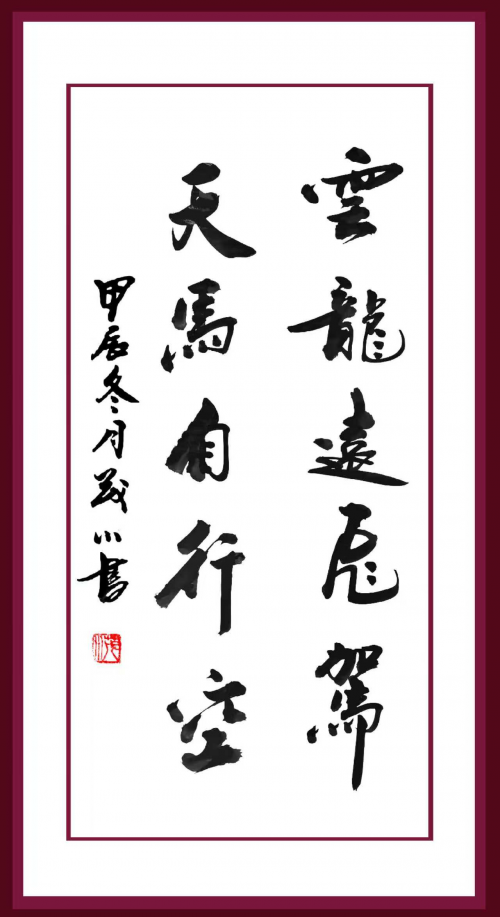 雲龍遠飛駕
天馬自行空
甲辰冬月書